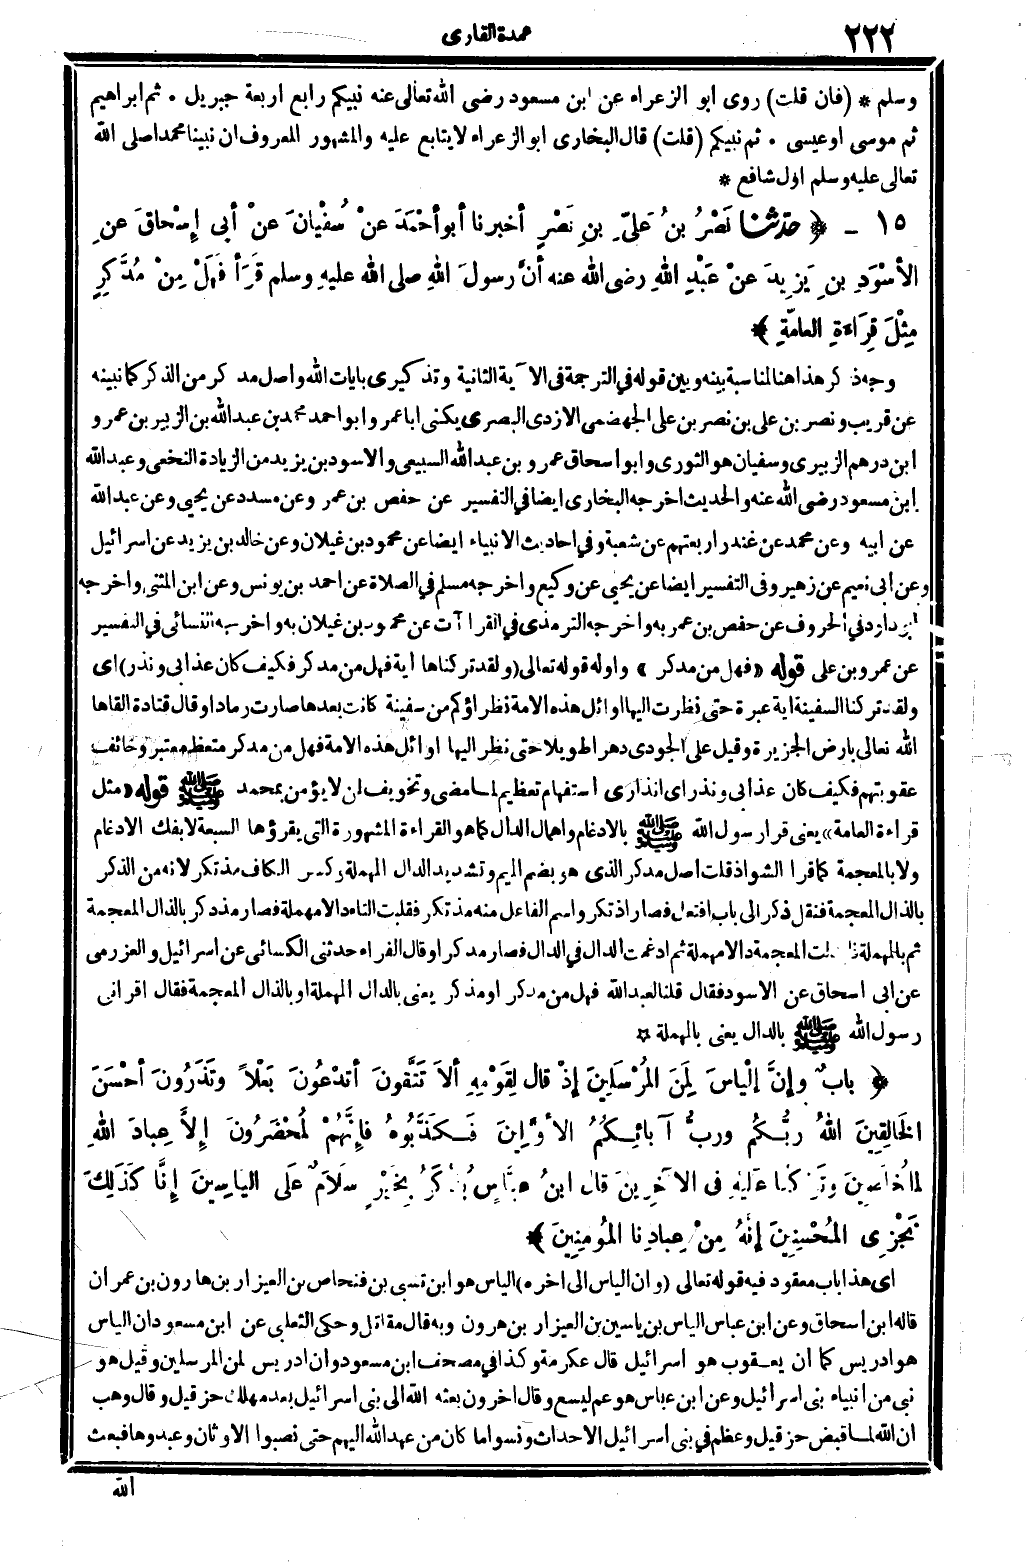 ٢٢٢
عمدة القارى
وسلم * (فان قلت) روى ابو الزعراء عن ابن مسعود رضى الله تعالى عنه نبيكم رابع اربعة جبريل . ثم ابراهيم
ثم موسى او عيسى . ثم نبيكم (قلت) قال البخارى ابو الزعراء لا يتابع عليه والمشهور المعروف ان نبينا محمدا صلى الله
تعالى عليه وسلم اول شافع *
١٥ - ﴿ حدثنا نَصْرُ بنُ عَلِىّ بنِ نَصْرٍ أخبرنا أبو أحْمَدَ عنْ سُفْيانَ عنْ أبى إسْحاقَ عنِ
الأسْوَدِ بنِ يَزِيدَ عنْ عَبْدِ اللهِ رضى الله عنه أنَّ رسولَ اللهِ صلى الله عليهِ وسلم قَرَأ فَهَلْ مِنْ مُدَّكِرٍ
مِثْلَ قِرَاءَةِ العامَّةِ ﴾
وجه ذكر هذا هنا لمناسبة بينه وبين قوله في الترجمة في الآية الثانية وتذكيرى بايات الله واصل مدكر من الذكر كما نبينه
عن قريب ونصر بن على بن نصر بن على الجهضمى الازدى البصرى يكنى ابا عمرو ابو احمد محمد بن عبدالله بن الزبير بن عمرو
ابن درهم الزبيرى وسفيان هو الثورى وابو اسحاق عمرو بن عبدالله السبيعى والاسود بن يزيد من الزيادة النخعى وعبدالله
ابن مسعود رضى الله عنه والحديث اخرجه البخارى ايضا في التفسير عن حفص بن عمر وعن مسدد عن يحيى وعن عبدالله
عن ابيه وعن محمد عن غندر اربعتهم عن شعبة وفي احاديث الانبياء ايضا عن محمود بن غيلان وعن خالد بن يزيد عن اسرائيل
وعن ابى نعيم عن زهير وفى التفسير ايضا عن يحيى عن وكيع واخرجه مسلم في الصلاة عن احمد بن يونس وعن ابن المثنى واخرجه
ابو داود في الحروف عن حفص بن عمر به واخرجه الترمذى في القراآت عن محمود بن غيلان به واخرجه النسائى في التفسير
عن عمرو بن على قوله «فهل من مدكر» واوله قوله تعالى (ولقد تركناها اية فهل من مدكر فكيف كان عذابى ونذر) اى
ولقد تركنا السفينة اية عبرة حتى نظرت اليها اوائل هذه الامة نظرا وكم من سفينة كانت بعدها صارت رمادا وقال قتادة القاها
الله تعالى بارض الجزيرة وقيل على الجودى دهرا طويلا حتى نظر اليها اوائل هذه الامة فهل من مدكر متعظ معتبر وخائف
عقوبتهم فكيف كان عذابى ونذر اى انذارى استفهام تعظيم لما مضى وتخويف ان لا يؤمن بمحمد ﷺ قوله «مثل
قراءة العامة» يعنى قرا رسول الله ﷺ بالادغام واهمال الدال كما هو القراءة المشهورة التى يقرؤها السبعة لا بفك الادغام
ولا بالمعجمة كما قرا الشواذ قلت اصل مدكر الذى هو بضم الميم وتشديد الدال المهملة وكسر الكاف مذتكر لانه من الذكر
بالذال المعجمة فنقل ذكر الى باب افتعل فصار اذتكر واسم الفاعل منه مذتكر فقلبت التاء دالا مهملة فصار مذدكر بالذال المعجمة
ثم بالمهملة المعجمة دالا مهملة ثم ادغمت الدال في الدال فصار مدكرا وقال الفراء حدثنى الكسائى عن اسرائيل والعزرمى
عن ابى اسحاق عن الاسود فقال قلنا لعبدالله فهل من مدكر او مذكر يعنى بالدال المهملة او بالذال المعجمة فقال اقرانى
رسول الله ﷺ بالدال يعنى بالمهملة *
﴿ بابٌ وإنَّ إلْياسَ لَمِنَ المُرْسَلِينَ إذْ قال لِقَوْمِهِ ألاَ تَتَّقُونَ أتَدْعُونَ بَعْلاً وتَذَرُونَ أحْسَنَ
الخالِقِينَ اللهُ رَبُّكُم ورَبُّ آبائِكُمُ الأوَّلِينَ فَكَذَّبُوهُ فإنَّهُمْ لَمُحْضَرُونَ إلاَّ عِبادَ اللهِ
المُخْلَصِينَ وتَرَكْنا عَلَيْهِ فى الآخِرِينَ قال ابنُ عبَّاسٍ يُذْكَرُ بِخَيْرٍ سَلاَمٌ عَلَى الياسِينَ إنَّا كَذَلِكَ
نَجْزِى المُحْسِنِينَ إنَّهُ مِنْ عِبادِنا المُؤمِنِينَ ﴾
اى هذا باب معقود فيه قوله تعالى (وان الياس الى اخره) الياس هو ابن تسبى بن فنحاص بن العيزار بن هارون بن عمران
قاله ابن اسحاق وعن ابن عباس الياس بن ياسين بن العيزار بن هرون وبه قال مقاتل وحكى الثعلبى عن ابن مسعود ان الياس
هو ادريس كما ان يعقوب هو اسرائيل قال عكرمة وكذا في مصحف ابن مسعود وان ادريس لمن المرسلين وقيل هو
نبى من انبياء بنى اسرائيل وعن ابن عباس هو عم ليسع وقال اخرون بعثه الله الى بنى اسرائيل بعد مهلك حزقيل وقال وهب
ان الله لما قبض حزقيل وعظم في بنى اسرائيل الاحداث ونسوا ما كان من عهد الله اليهم حتى نصبوا الاوثان وعبدوها فبعث
الله